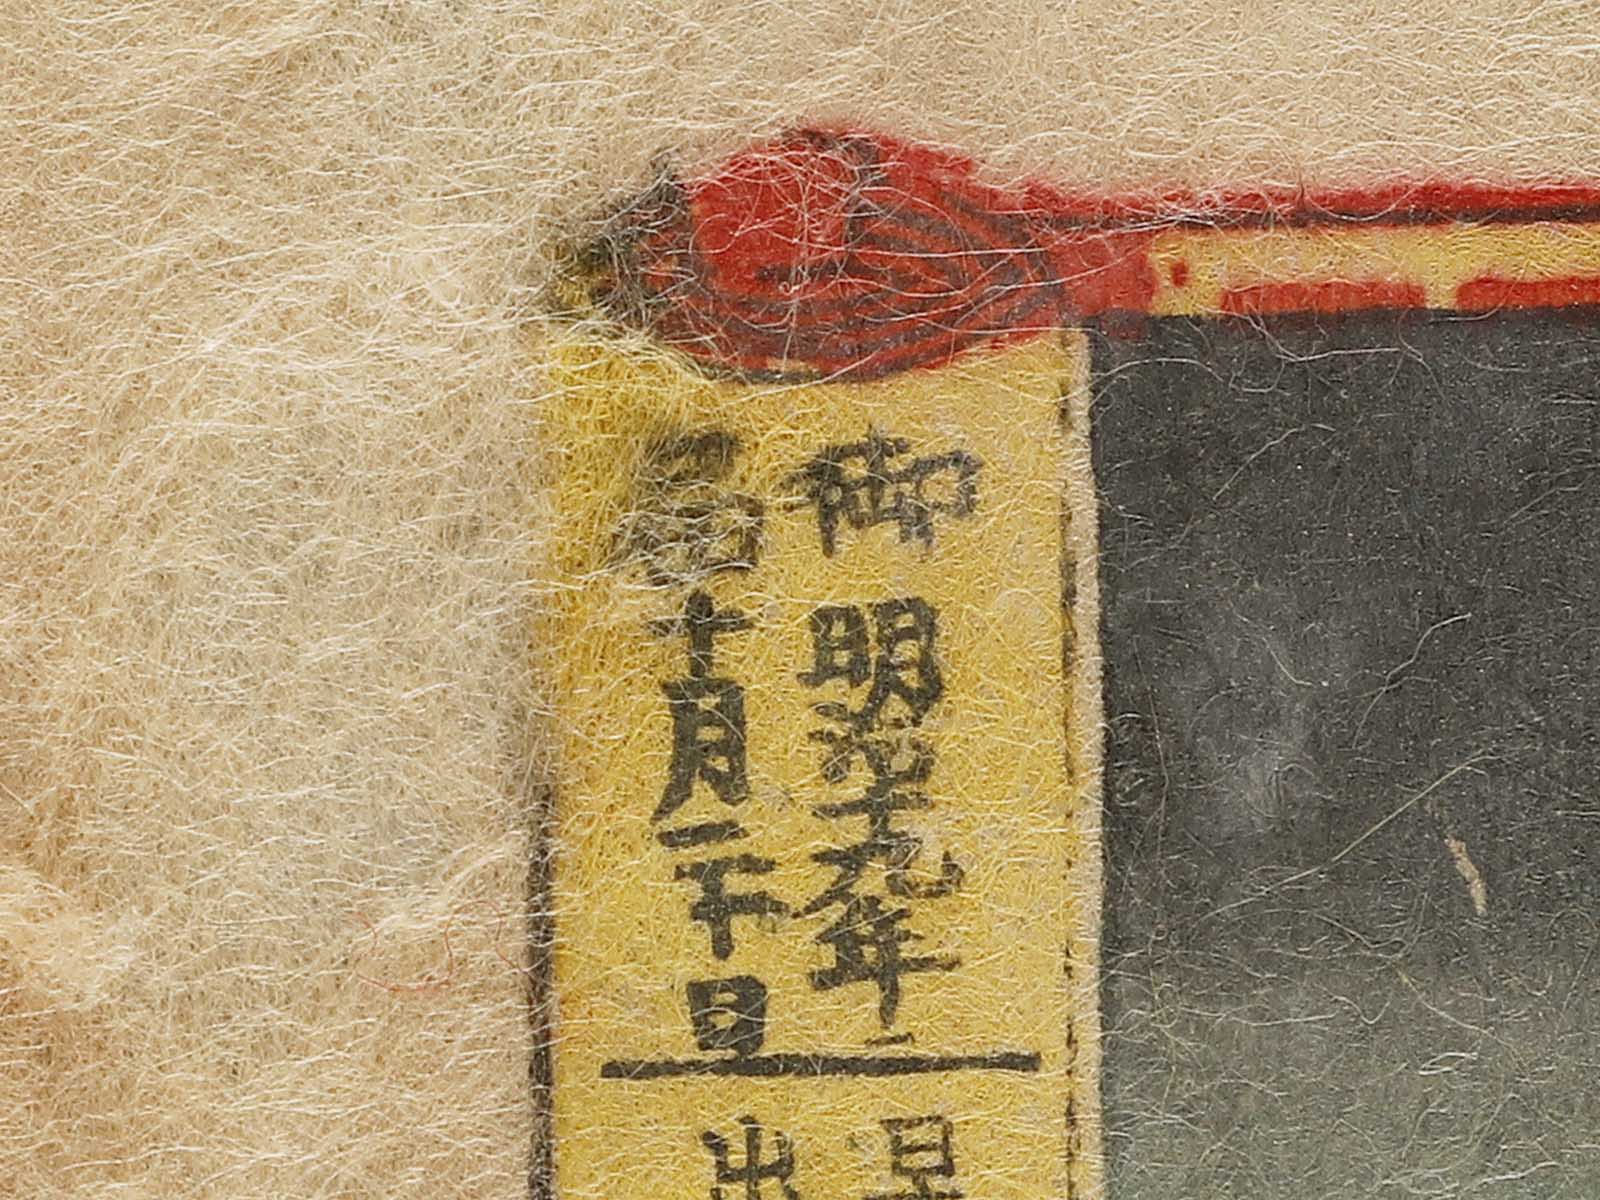 御 明治十九年
届 十月二十日